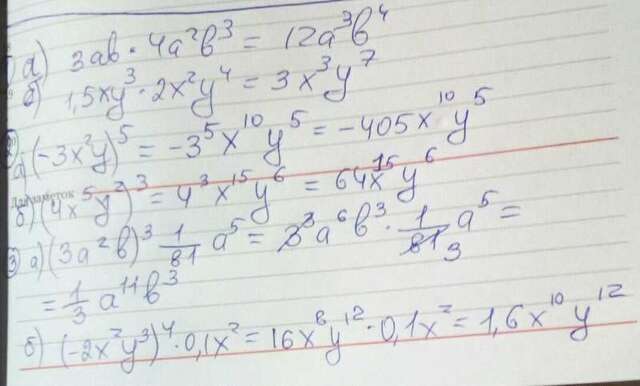 1) а) 3ab · 4a²b³ = 12a³b⁴
б) 1,5xy³ · 2x²y⁴ = 3x³y⁷
2) а) (-3x²y)⁵ = -3⁵x¹⁰y⁵ = -405x¹⁰y⁵
б) (4x⁵y²)³ = 4³x¹⁵y⁶ = 64x¹⁵y⁶
3) а) (3a²b)³ 1/81 a⁵ = 3³a⁶b³ · 1/81 3 a⁵ =
= 1/3 a¹¹b³
б) (-2x²y³)⁴ · 0,1x² = 16x⁸y¹² · 0,1x² = 1,6x¹⁰y¹²